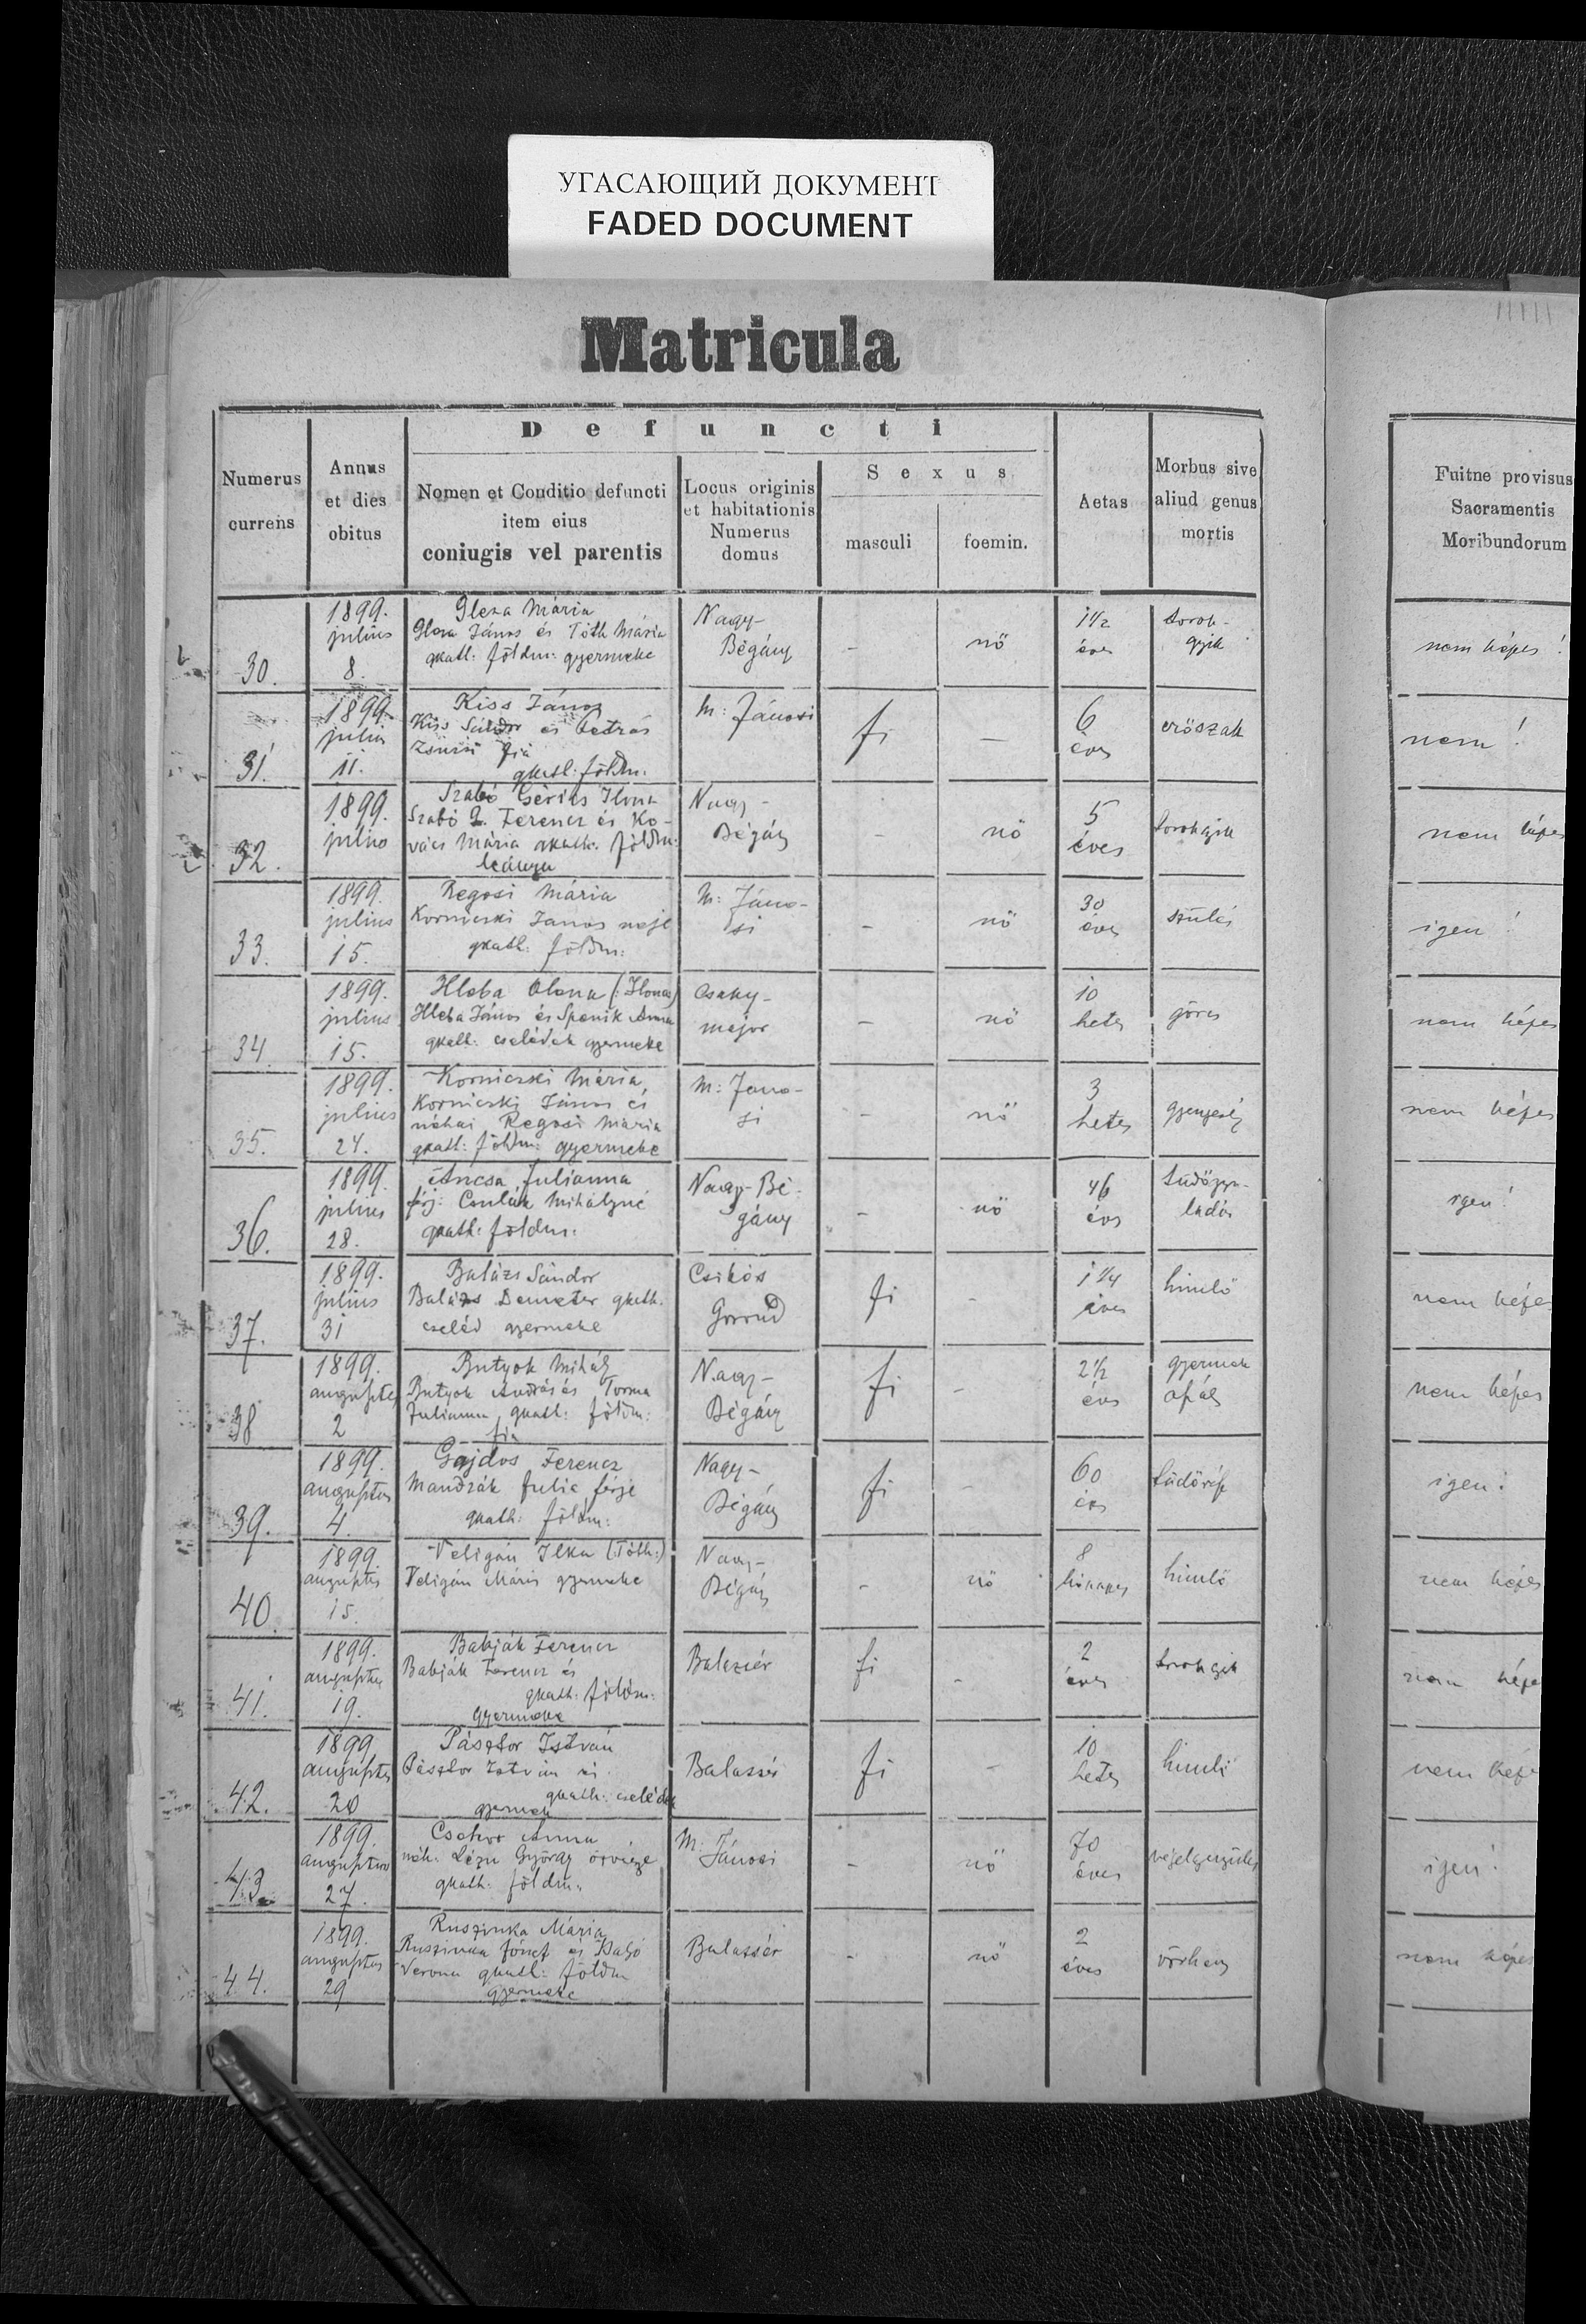 УГАСАЮЩИЙ ДОКУМЕНТ
FADED DOCUMENT
Matricula
Defuncti
Numerus currens
Annus et dies obitus
Nomen et Conditio defuncti
item eius
coniugis vel parentis
Locus originis
et habitationis
Numerus
domus
Sexus
masculi
foemin.
Aetas
Morbus sive
aliud genus
mortis
Fuitne provisus
Sacramentis
Moribundorum
30.
1899.
julius
8.
Gleza Mária
Gleza János és Tóth Mária
gkath: földm: gyermeke
Nagy-
Bégány
-
nő
1 1/2
éves
torok-
gyik
nem képes!
31.
1899.
julius
11.
Kiss János
Kiss Sándor és Petrás
Zsuzsi fia
gkatl: földm:
M: Jánosi
fi
-
6
éves
erőszak
nem!
32.
1899.
julius
Szabó Ilona
Szabó Ferencz és Ko-
vács Mária gkath. földm:
leánya
Nagy-
Bégány
-
nő
5
éves
torokgyik
nem képes
33.
1899.
julius
15.
Regosi Mária
Korniczki Janos neje
gkath: földm:
M: Jáno-
si
-
nő
30
éves
szülés
igen!
34
1899.
julius
15.
Hleba Olena (:Ilona:)
Hleba János és Spenik Anna
gkatl: cselédek gyermeke
Csaky-
major
-
nő
10
hetes
görcs
nem képes
35.
1899.
julius
24.
Korniczki Mária,
Korniczki János és
néhai Regosi Mária
gkatl: földm: gyermeke
M: Jano-
si
-
nő
3
hetes
gyengeség
nem képes
36.
1899.
julius
28.
Ancsa Julianna
férj: Csulák Mihályné
gkath: földm:
Nagy-Bé-
gány
-
nő
46
éves
tüdőgyu-
ladás
igen!
37.
1899.
julius
31
Balázs Sándor
Balázs Demeter gkath.
cseléd gyermeke
Csikós
Gorond
fi
-
1 1/4
éves
himlő
nem képes
38
1899.
augusztus
2
Butyok Mihály
Butyok András és Torma
Julianna gkatl: földm:
fia
Nagy-
Bégány
fi
-
2 1/2
éves
gyermek
nem képes
39.
1899.
augusztus
4.
Gajdos Ferencz
Mandzák Julia férje
gkath: földm:
Nagy-
Bégány
fi
-
60
éves
igen!
40.
1899.
augusztus
15.
Veligán Ilka (:Tóth:)
Veligán Mária gyermeke
Nagy-
Bégány
-
nő
8
hónapos
himlő
nem képes
41.
1899.
augusztus
19.
Babják Ferencz
Babják Ferencz és
gkath: földm:
gyermeke
Balazsér
fi
-
2
éves
torokgyik
nem képes
42.
1899
augusztus
20
Pásztor István
Pásztor István és
gkath: cselédek
gyermek
Balazsér
fi
-
10
hetes
himlő
nem képes
43.
1899.
augusztus
27.
Csehor Anna
néh: György özvegye
gkath: földm:
M:
Jánosi
-
nő
70
éves
végelgyengülés
igen!
44.
1899.
augusztus
29
Ruszinka Mária
Ruszinka József és
Verona gkatl: földm
gyermeke
Balazsér
-
nő
2
éves
vörheny
nem képes